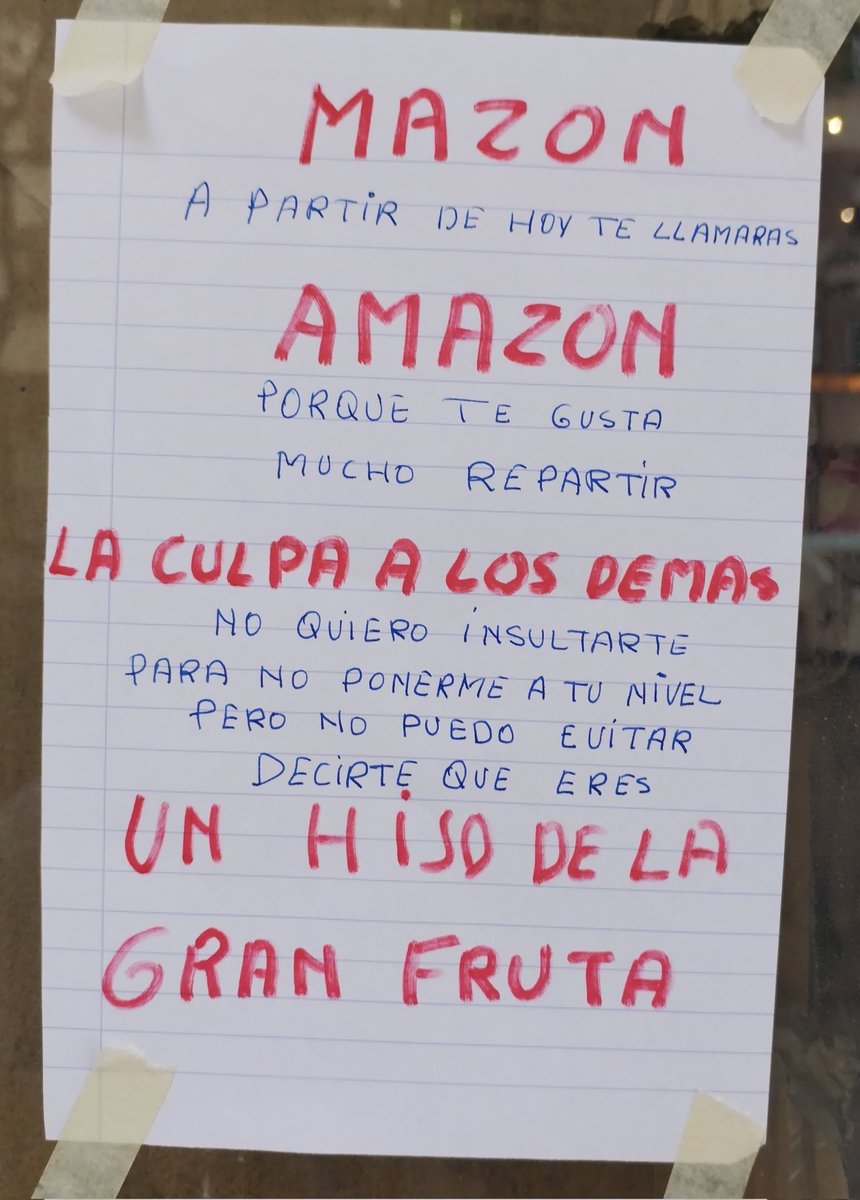 MAZON
A PARTIR DE HOY TE LLAMARAS
AMAZON
PORQUE TE GUSTA
MUCHO REPARTIR
LA CULPA A LOS DEMAS
NO QUIERO INSULTARTE
PARA NO PONERME A TU NIVEL
PERO NO PUEDO EVITAR
DECIRTE QUE ERES
UN HIJO DE LA
GRAN FRUTA